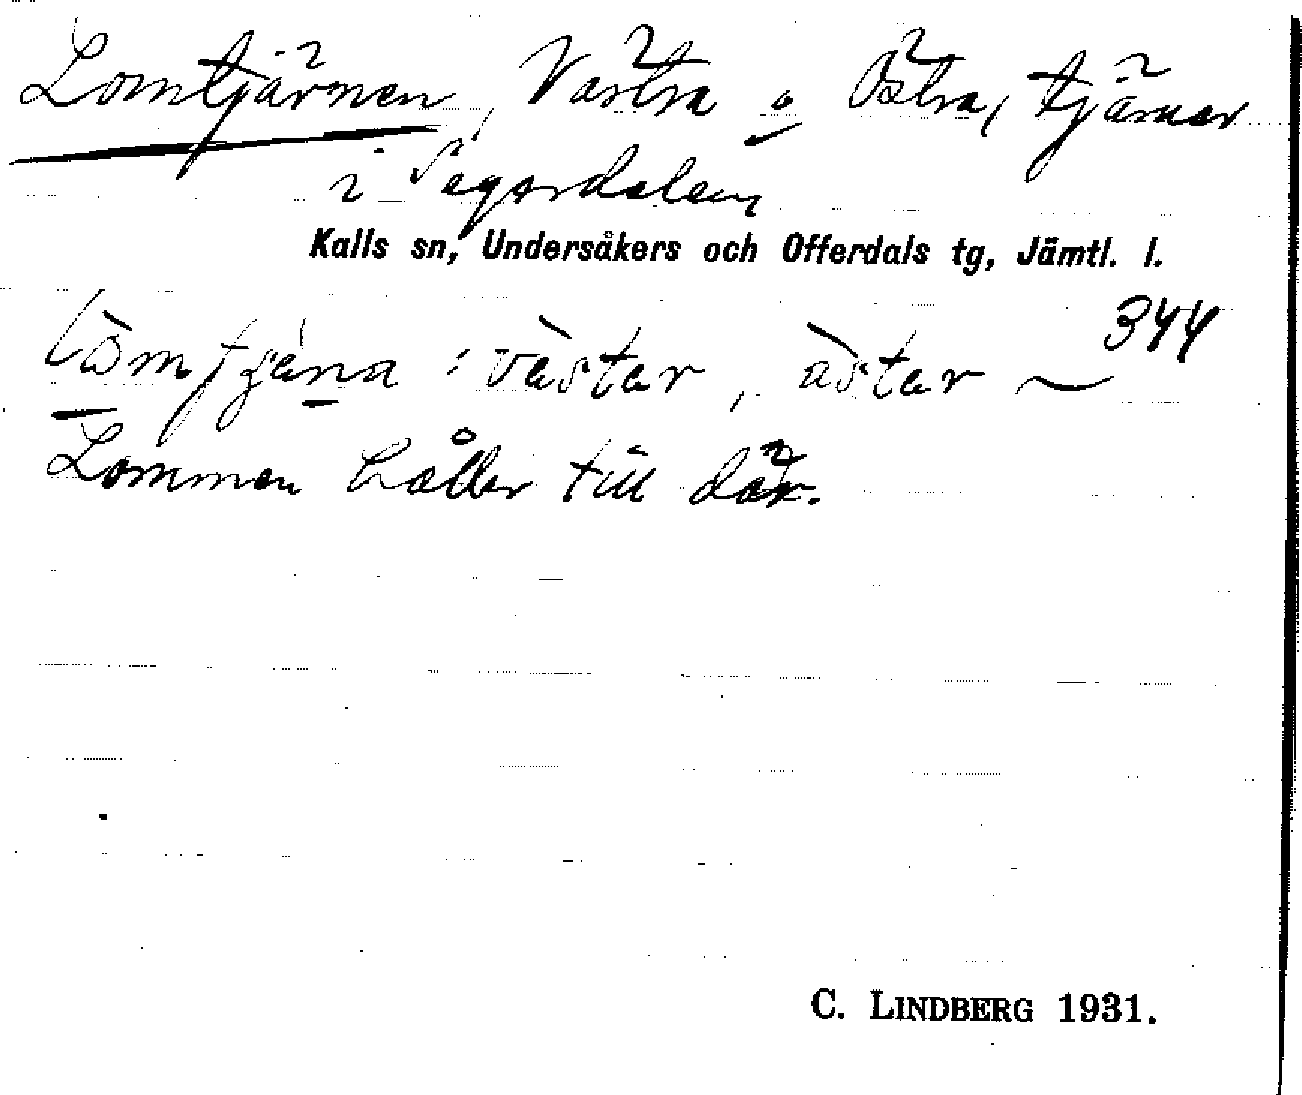 Lomtjärnen, Västra o Östra, tjärnar
i Sagardalen
Kalls sn, Undersåkers och Offerdals tg, Jämtl. l.
344
västar, àstar ~
Lommen håller till där.
C. LINDBERG 1931.